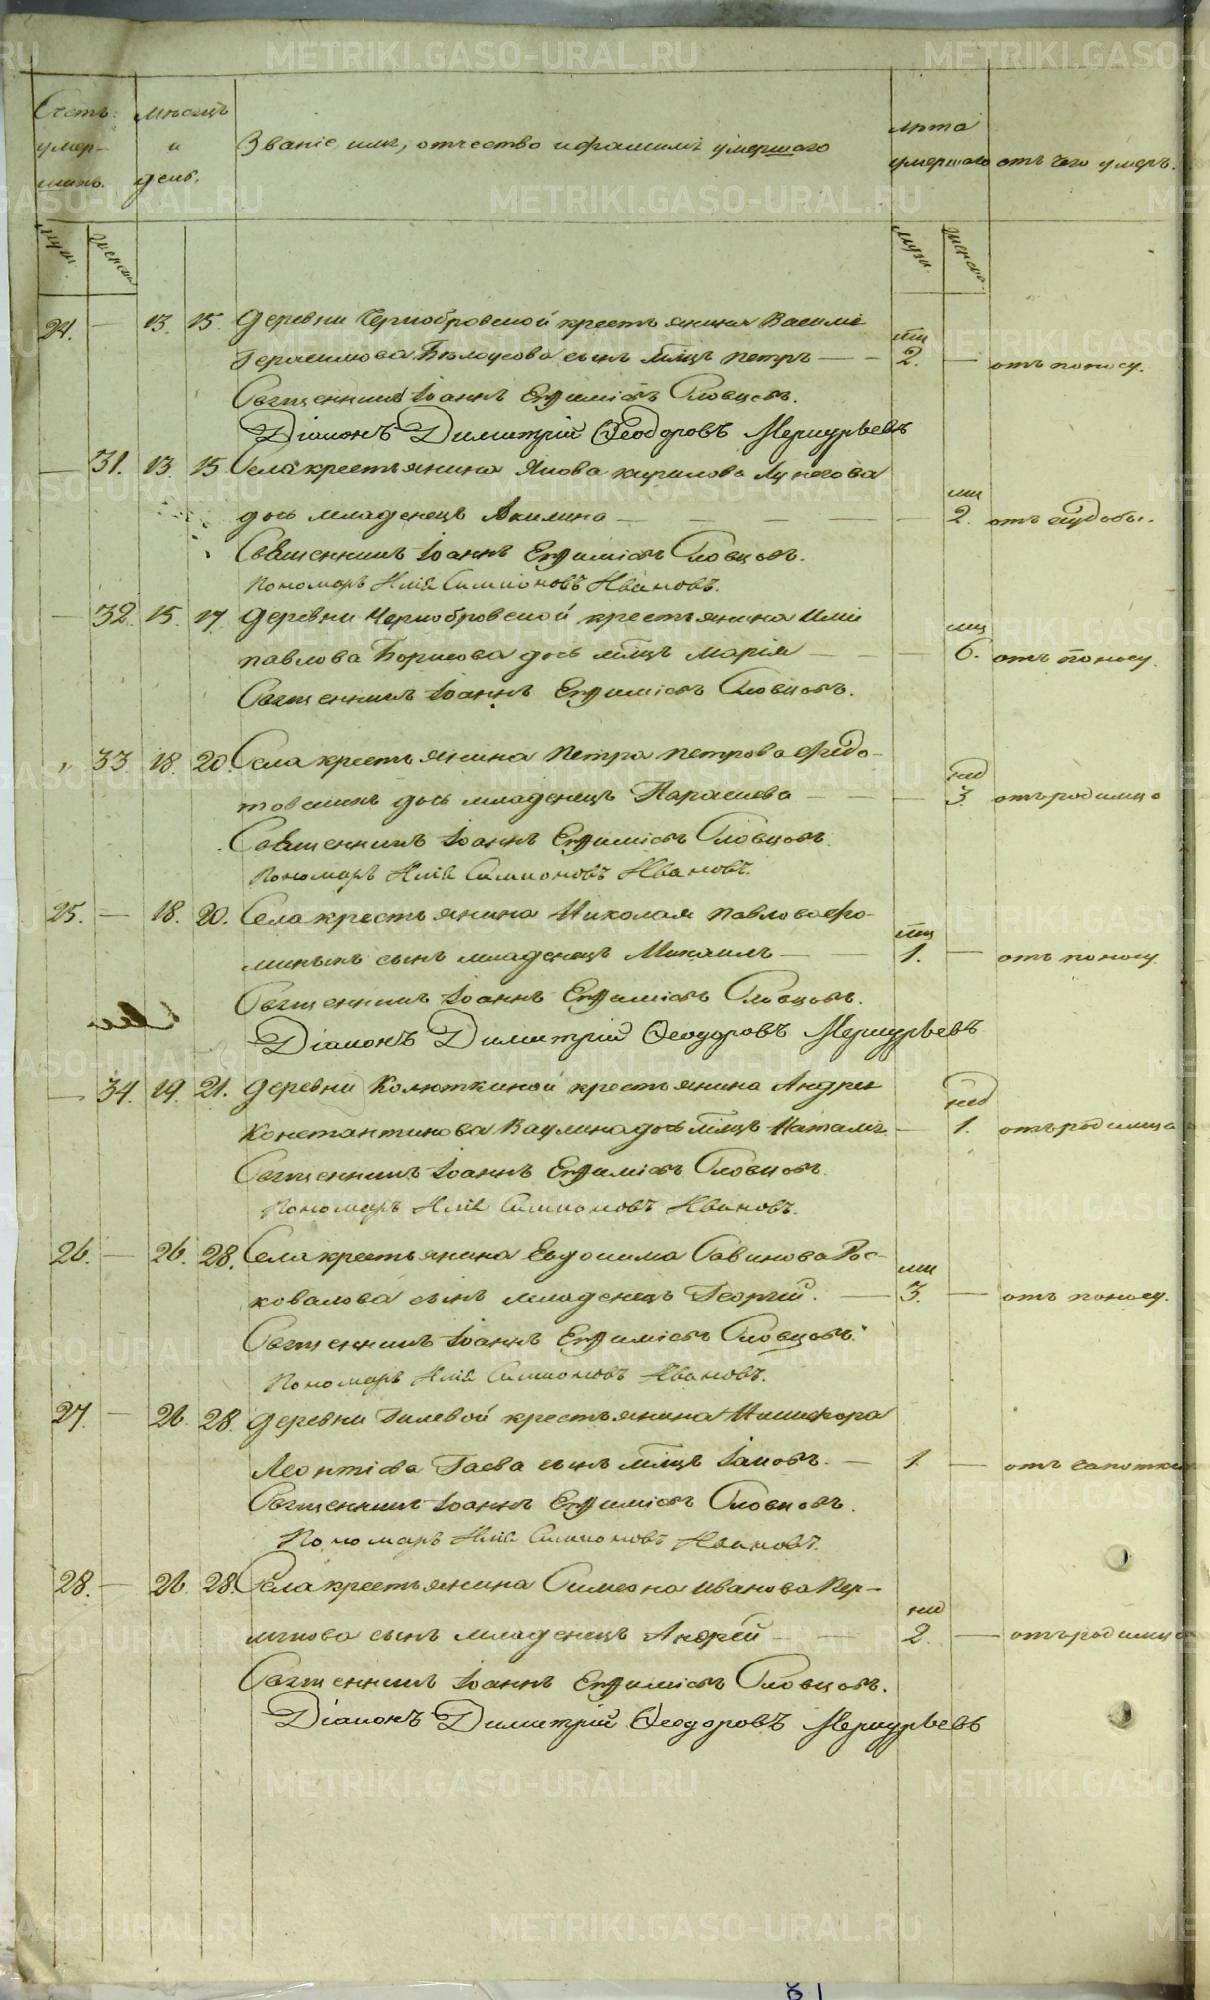 Счетъ умер- шихъ. Мѣсяцъ и день. Званіе, имя, отчество и фамилія умершаго Лѣта умершаго отъ чего умеръ.
муж. женск. муж. женск.
24. — 13. 15. Деревни Чернобровской крестьянина Василія
Герасимова Бѣлоусова сынъ млцъ Петръ — — мц 2. — отъ поносу.
Священникъ Іоаннъ Евѳиміевъ Словцовъ.
Діаконъ Димитрій Ѳеодоровъ Меркурьевъ
— 31. 13. 15 Села крестьянина Якова Кирилова Лунегова
дочь младенецъ Акилина — — — — — мц 2. отъ худобы.
Священникъ Іоаннъ Евѳиміевъ Словцовъ.
Пономарь Илія Симионовъ Ивановъ.
— 32. 15. 17. Деревни Чернобровской крестьянина Иліи
Павлова Борисова дочь млцъ Марія — — — мц 6. отъ поносу.
Священникъ Іоаннъ Евѳиміевъ Словцовъ.
33. 18. 20. Села крестьянина Петра Петрова Ѳедо-
товскихъ дочь младенецъ Параскева — — — нед 3. отъ родимца
Священникъ Іоаннъ Евѳиміевъ Словцовъ.
Пономарь Илія Симионовъ Ивановъ.
25. — 18. 20. Села крестьянина Николая Павлова Фо-
миныхъ сынъ младенецъ Михаилъ — — мц 1. — отъ поносу.
Священникъ Іоаннъ Евѳиміевъ Словцовъ.
Діаконъ Димитрій Ѳеодоровъ Меркурьевъ
— 34. 19. 21. Деревни Колюткиной крестьянина Андрея
Константинова Ваулина дочь млцъ Наталія — нед 1. отъ родимца
Священникъ Іоаннъ Евѳиміевъ Словцовъ.
Пономарь Илія Симионовъ Ивановъ.
26. — 26. 28. Села крестьянина Евдокима Савинова Рос-
ковалова сынъ младенецъ Георгій. — мц 3. — отъ поносу.
Священникъ Іоаннъ Евѳиміевъ Словцовъ.
Пономарь Илія Симионовъ Ивановъ.
27. — 26. 28. Деревни Гилевой крестьянина Никифора
Леонтіева Гаева сынъ млцъ Іаковъ. — 1. — отъ сапотки
Священникъ Іоаннъ Евѳиміевъ Словцовъ.
Пономарь Илія Симионовъ Ивановъ.
28. — 26. 28. Села крестьянина Симеона Иванова Пер-
мякова сынъ младенецъ Андрей — — нед 2. — отъ родимца
Священникъ Іоаннъ Евѳиміевъ Словцовъ.
Діаконъ Димитрій Ѳеодоровъ Меркурьевъ
METRIKI.GASO-URAL.RU